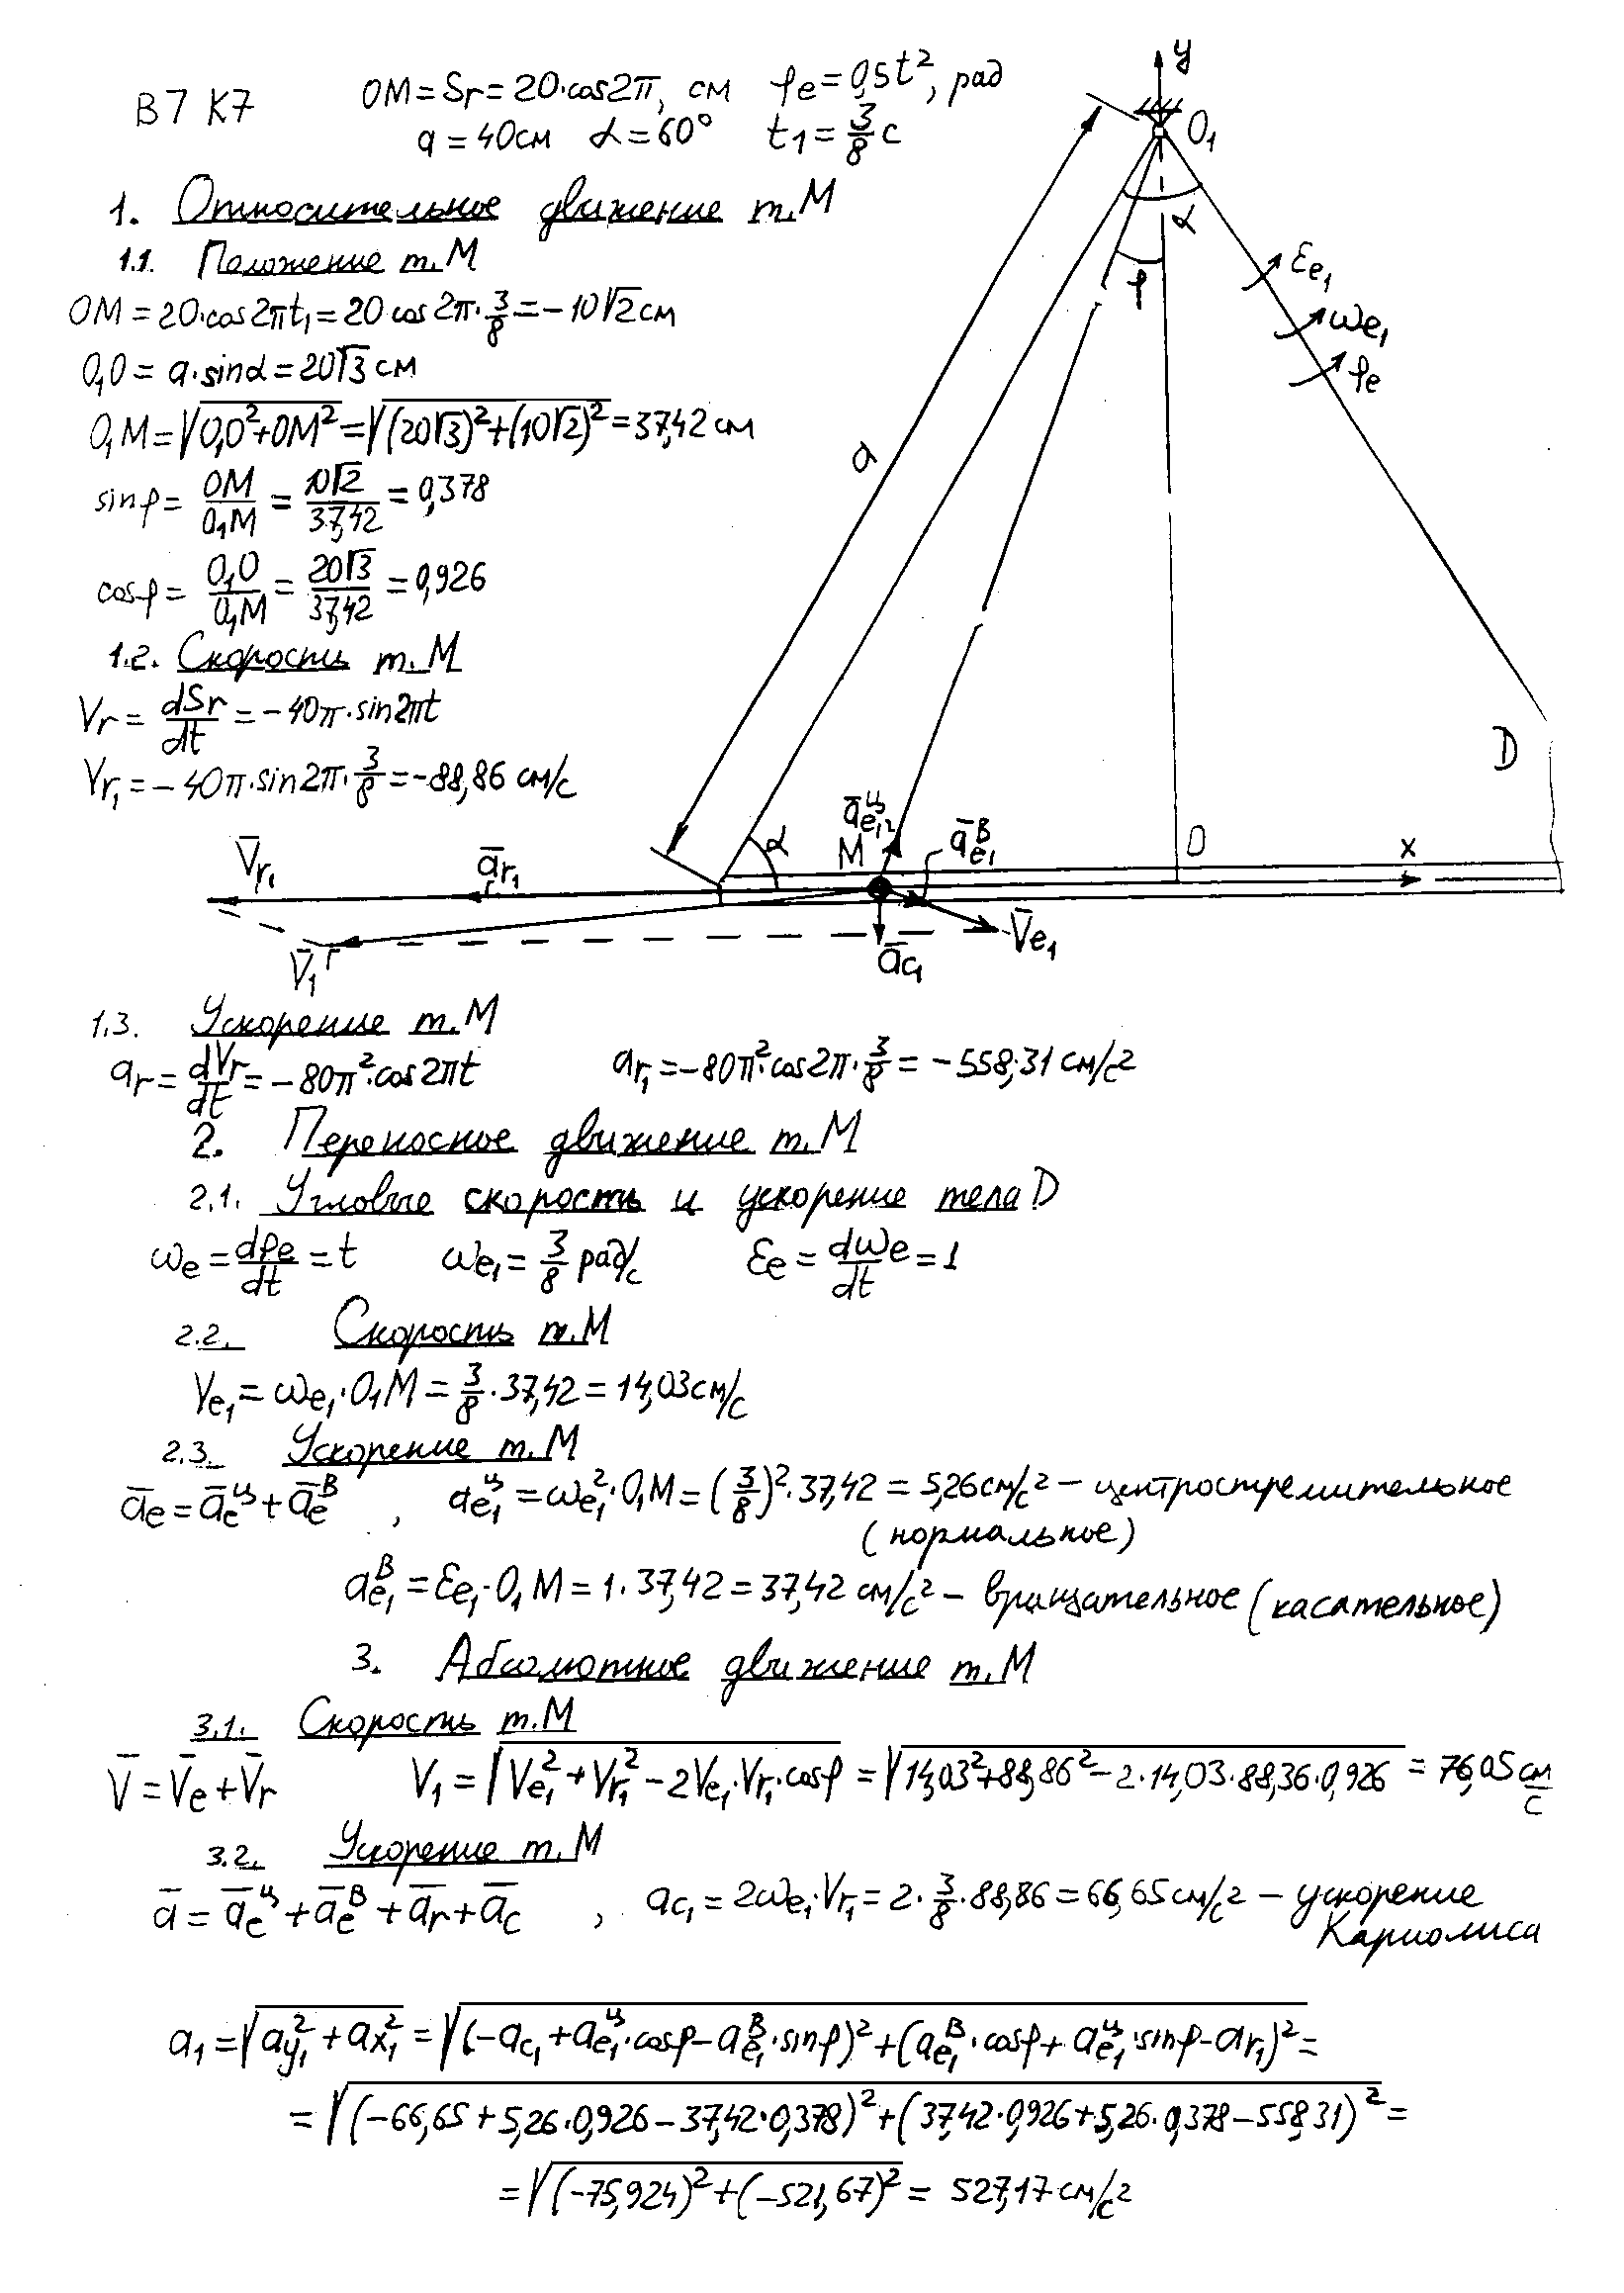 В7 К7
OM = Sr = 20·cos2π, см φe = 0,5t², рад
a = 40см α = 60° t₁ = 3/8 с
1. Относительное движение т.М
1.1. Положение т.М
OM = 20·cos2πt₁ = 20 cos 2π·3/8 = -10√2 см
O₁O = a·sinα = 20√3 см
O₁M = √(O₁O² + OM²) = √((20√3)² + (10√2)²) = 37,42 см
sinφ = OM/O₁M = 10√2/37,42 = 0,378
cosφ = O₁O/O₁M = 20√3/37,42 = 0,926
1.2. Скорость т.М
Vr = dSr/dt = -40π·sin2πt
Vr₁ = -40π·sin2π·3/8 = -88,86 см/с
y
O₁
α
φ
εe₁
ωe₁
φe
a
D
α
āᶸe₁
M
āᴮe₁
O
x
V̄r₁
ār₁
V̄₁
āc₁
V̄e₁
1.3. Ускорение т.М
ar = dVr/dt = -80π²·cos2πt ar₁ = -80π²·cos2π·3/8 = -558,31 см/с²
2. Переносное движение т.М
2.1. Угловые скорость и ускорение тела D
ωe = dφe/dt = t ωe₁ = 3/8 рад/с εe = dωe/dt = 1
2.2. Скорость т.М
Ve₁ = ωe₁·O₁M = 3/8·37,42 = 14,03 см/с
2.3. Ускорение т.М
āe = āeᶸ + āeᴮ , aᶸe₁ = ωe₁²·O₁M = (3/8)²·37,42 = 5,26 см/с² – центростремительное
(нормальное)
aᴮe₁ = εe₁·O₁M = 1·37,42 = 37,42 см/с² – вращательное (касательное)
3. Абсолютное движение т.М
3.1. Скорость т.М
V̄ = V̄e + V̄r V₁ = √(Ve₁² + Vr₁² - 2Ve₁·Vr₁·cosφ) = √(14,03² + 88,86² - 2·14,03·88,36·0,926) = 76,05 см/с
3.2. Ускорение т.М
ā = āeᶸ + āeᴮ + ār + āc , ac₁ = 2ωe₁·Vr₁ = 2·3/8·88,86 = 66,65 см/с² – ускорение
Кариолиса
a₁ = √(ay₁² + ax₁²) = √((-ac₁ + aᶸe₁·cosφ - aᴮe₁·sinφ)² + (aᴮe₁·cosφ + aᶸe₁·sinφ - ar₁)²) =
= √((-66,65 + 5,26·0,926 - 37,42·0,378)² + (37,42·0,926 + 5,26·0,378 - 558,31)²) =
= √((-75,924)² + (-521,67)²) = 527,17 см/с²